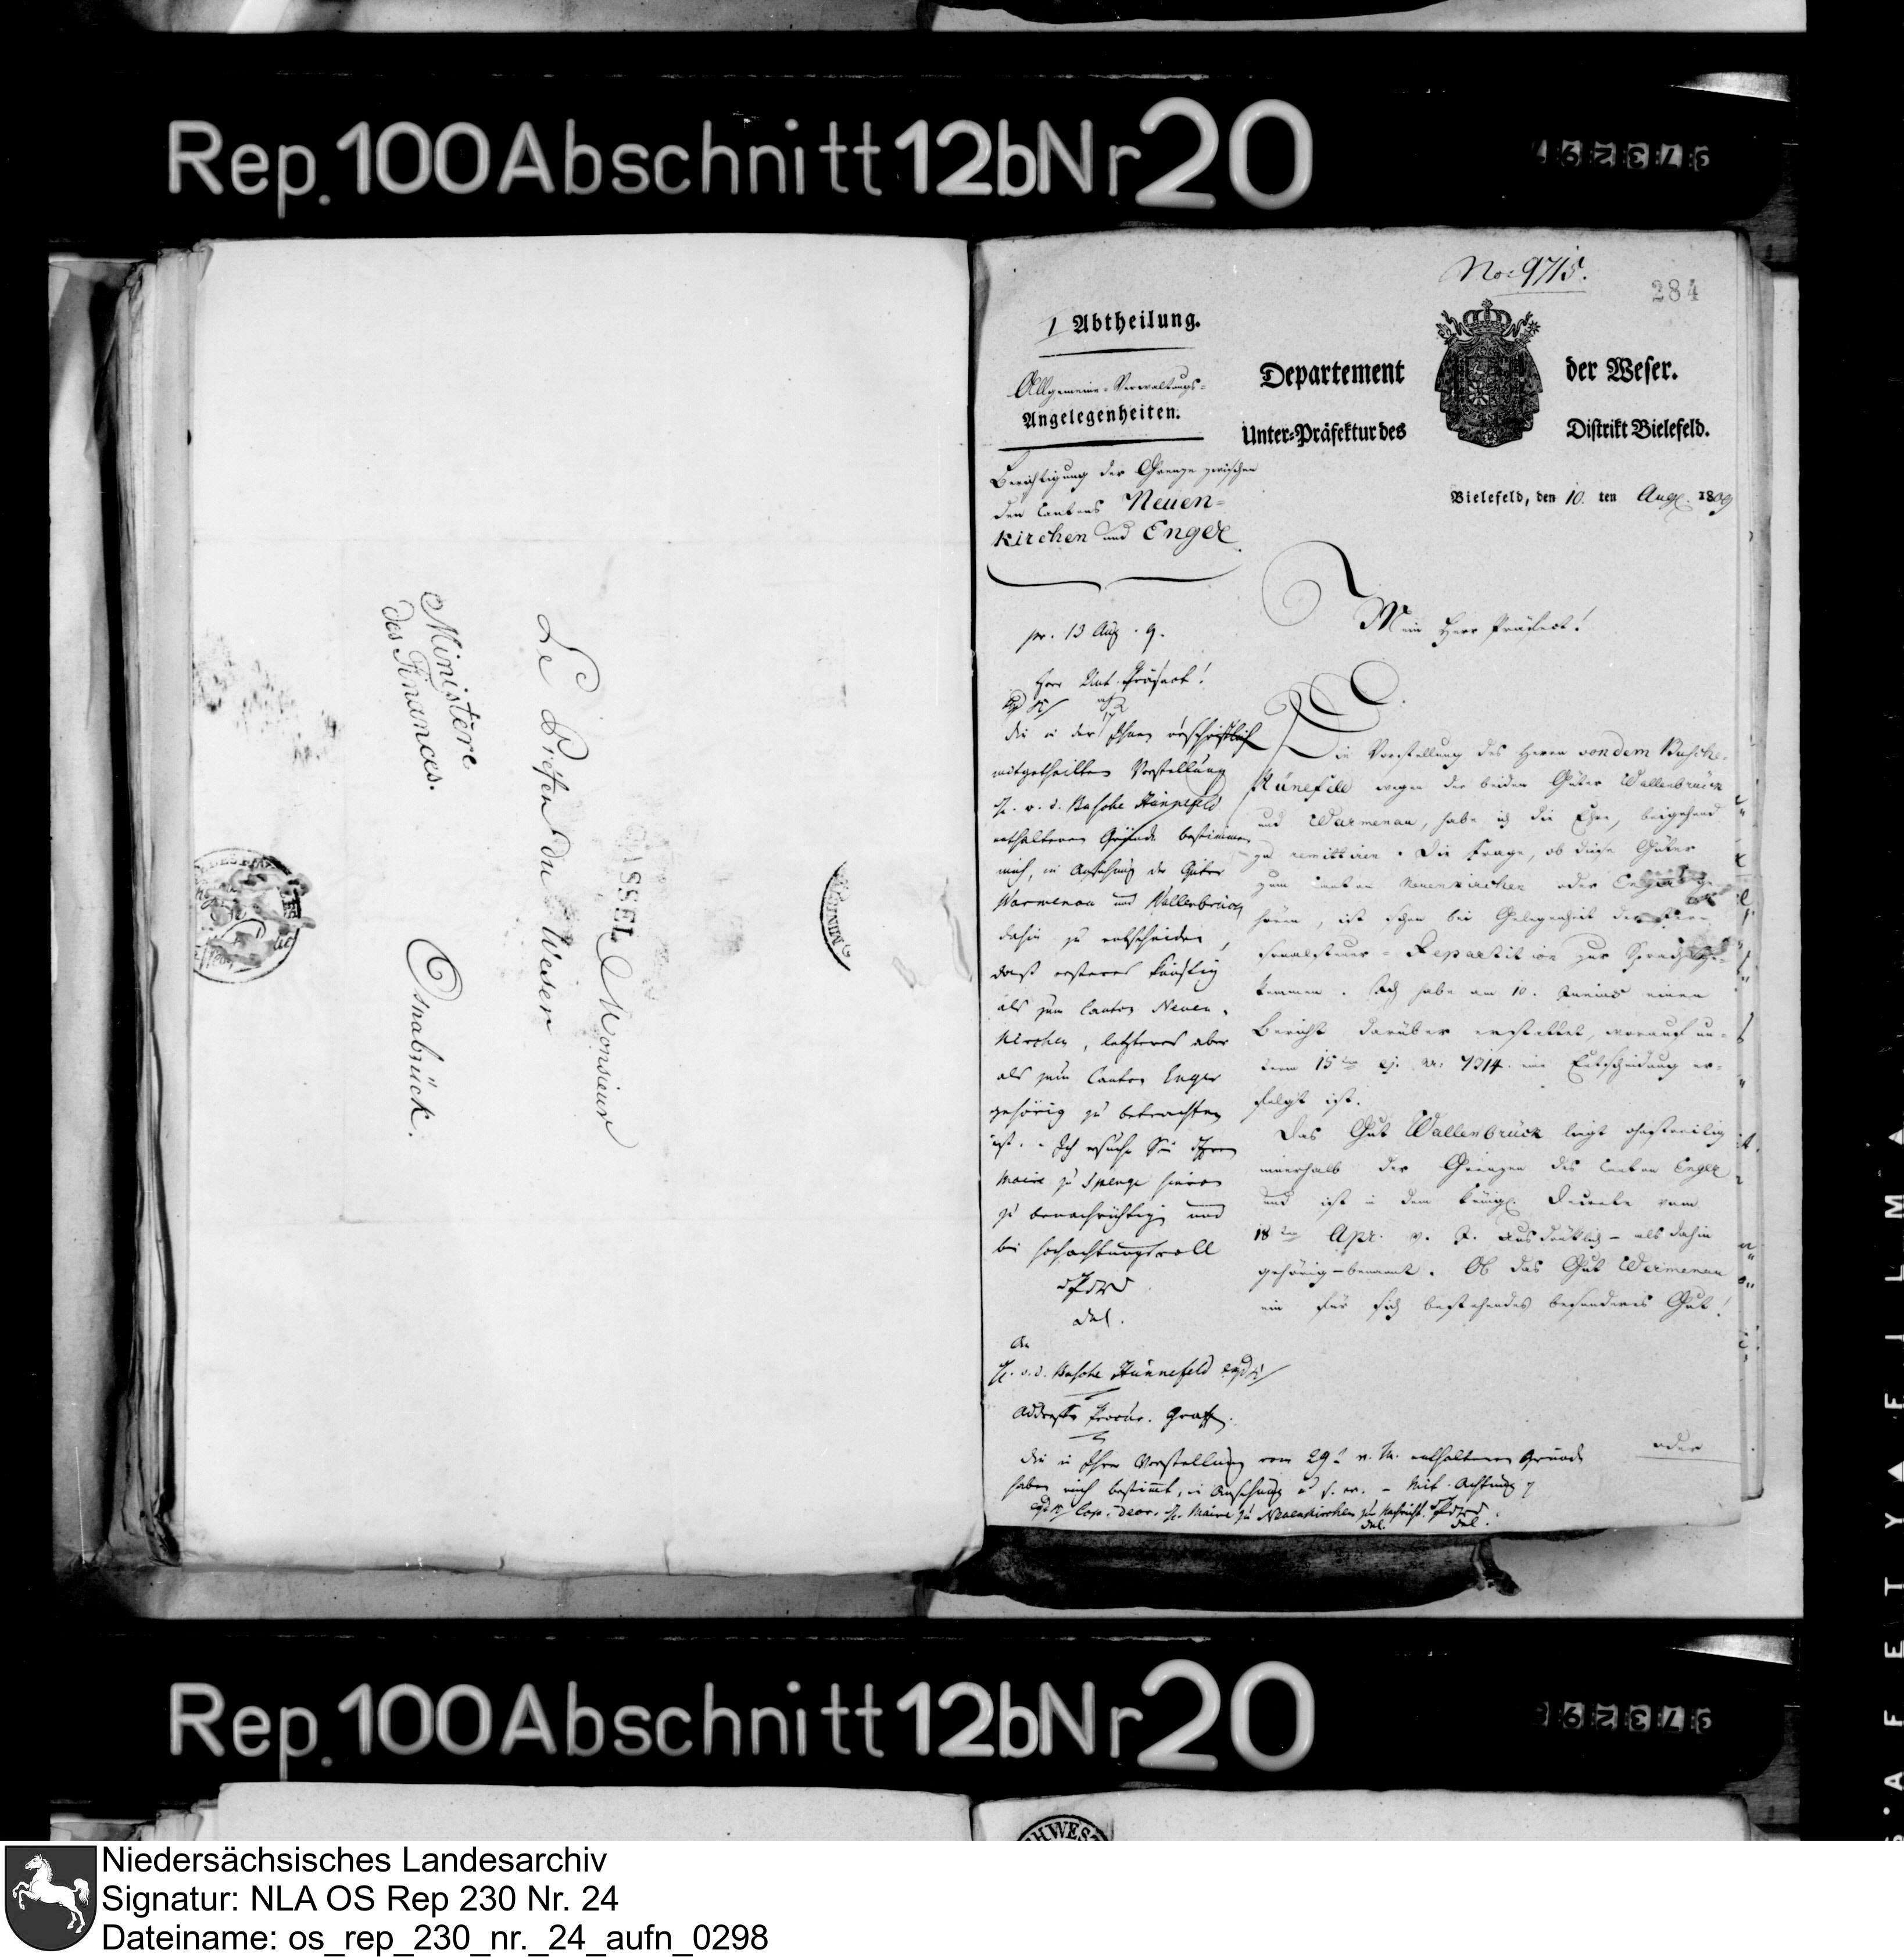 Rep. 100 Abschnitt 12b Nr 20
No: 9715.
284
I Abtheilung.
Allgemeine-Verwaltungs-
Angelegenheiten.
Departement der Weser.
Unter-Präfektur des Distrikt Bielefeld.
Berichtigung der Grenze zwischen
den Cantons Neuen-
kirchen und Enger
Bielefeld, den 10. ten Aug. 1809
Mein Herr Präfect!
Die Vorstellung des Herrn von dem Busche-
Hünefeld wegen der beiden Güter Wallenbrück
und Warmenau, habe ich die Ehre, beigehend
zu remittiren. Die Frage, ob diese Güter
zum Canton Neuenkirchen oder Enger ge-
hören, ist schon bei Gelegenheit der
sonalsteuer-Repartition zur Sprache ge-
kommen. Ich habe am 10. Junius einen
Bericht darüber erstattet, worauf un-
term 15ten ej. Nr: 7314. eine Entscheidung er-
folgt ist.
Das Gut Wallenbrück liegt ohnstreitig
innerhalb der Grenzen des Canton Enger
und ist in dem königl. Decrete vom
18ten Apr. v. J. ausdrücklich - als dahin
gehörig - benannt. Ob das Gut Warmenau
ein für sich bestehendes besonderes Gut!
oder
pr. 13 Aug. 9.
Herr Unt. Präfect!
die in der Ihnen urschriftlich
mitgetheilten Vorstellung
H. v. d. Busche Hünnefeld
enthaltenen Gründe bestimmen
mich, in Ansehung der Güter
Warmenau und Wallenbrück
dahin zu entscheiden,
daß ersteres künftig
als zum Canton Neuen-
kirchen, letzteres aber
als zum Canton Enger
gehörig zu betrachten
ist. Ich ersuche Sie Ihren
Maire zu Spenge hievon
zu benachrichtigen und
bin hochachtungsvoll
dPdWD
del.
An
H. v. d. Busche Hünnefeld
Addresse Procur. Graff.
die in Ihrer Vorstellung vom 29t v. M. enthaltenen Gründe
haben mich bestimmt, in Ansehung - Mit Achtung
Cop. decr. H. Maire zu Neuenkirchen zur Nachricht. dPdWD
del. del.
Ministère
des Finances.
CASSEL
Monsieur
Le Préfet du Weser
Osnabrück.
Rep. 100 Abschnitt 12b Nr 20
Niedersächsisches Landesarchiv
Signatur: NLA OS Rep 230 Nr. 24
Dateiname: os_rep_230_nr._24_aufn_0298